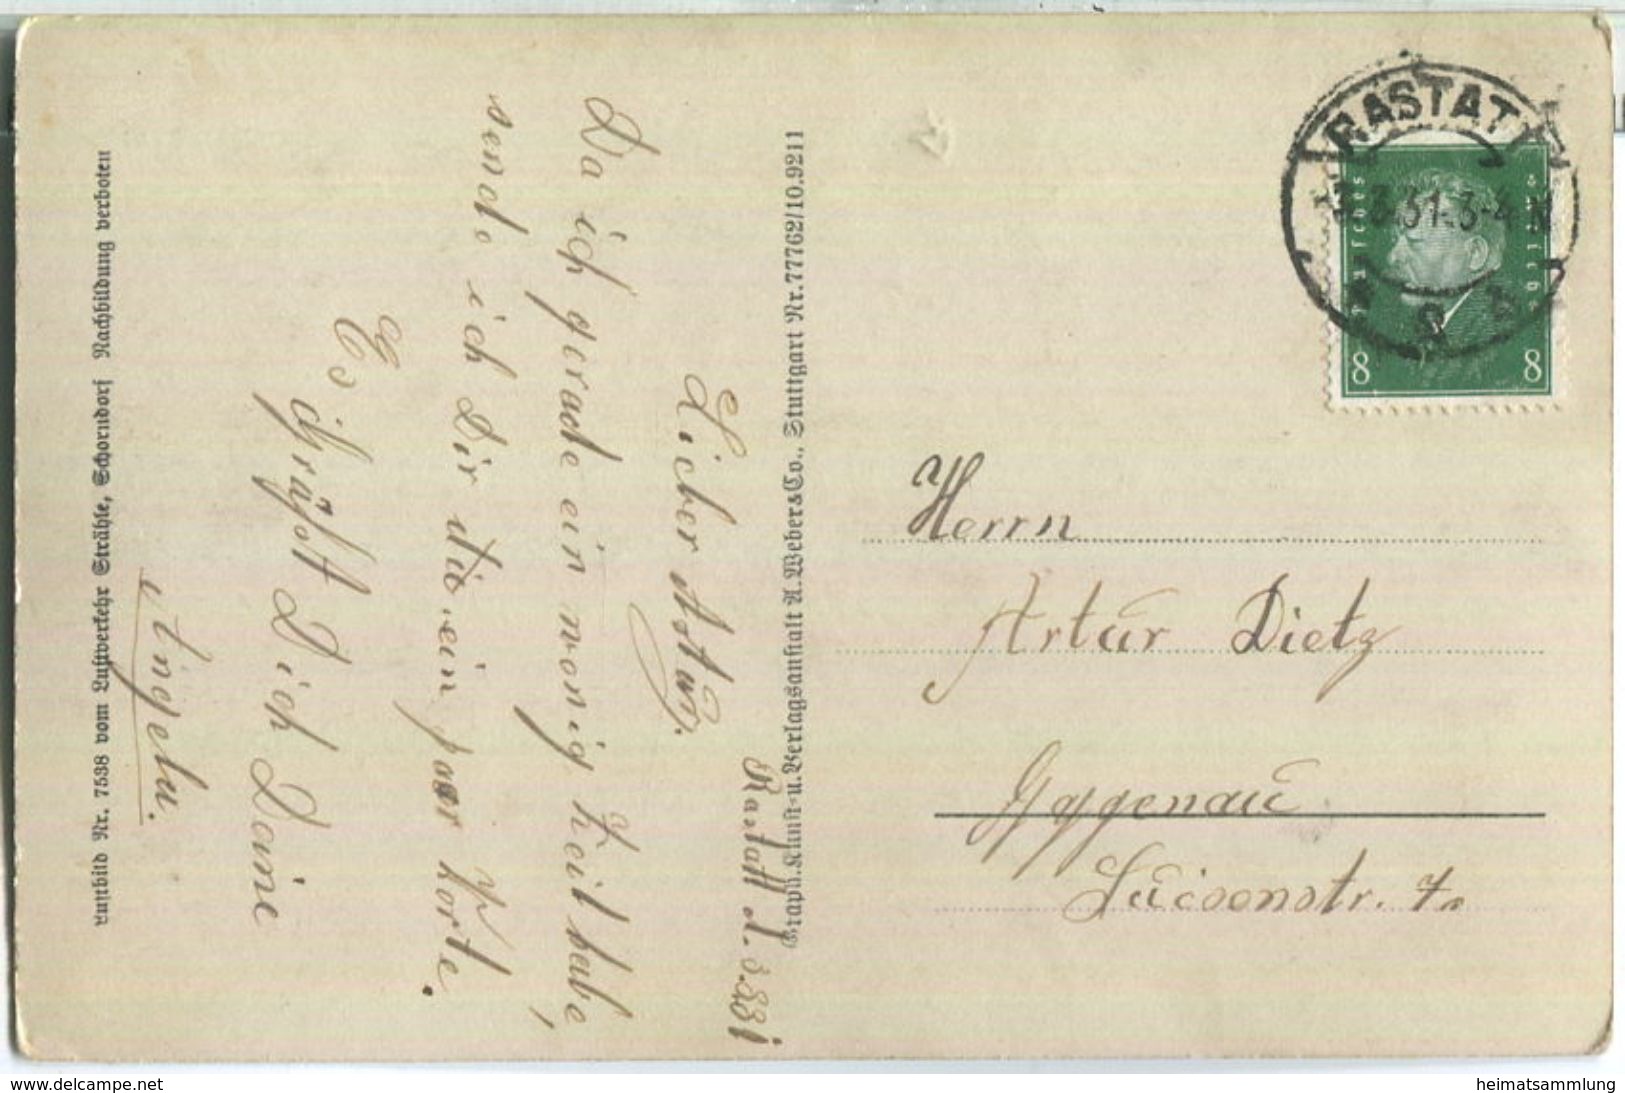 Rastatt d. 3.3.31
Lieber Artur.
Da ich gerade ein wenig Zeit habe,
send. ich Dir die ein paar Worte.
Es grüßt Dich Deine
Angela.
Luftbild Nr. 7538 vom Luftverkehr Strähle, Schorndorf Nachbildung verboten
Graph. Kunst- u. Verlagsanstalt A. Weber & Co., Stuttgart Nr. 77762/10.9211
RASTATT
3.31.3-4 N
Deutsches Reich
8 8
Herrn
Artur Dietz
Gaggenau
Luisenstr. 7a
www.delcampe.net
heimatsammlung